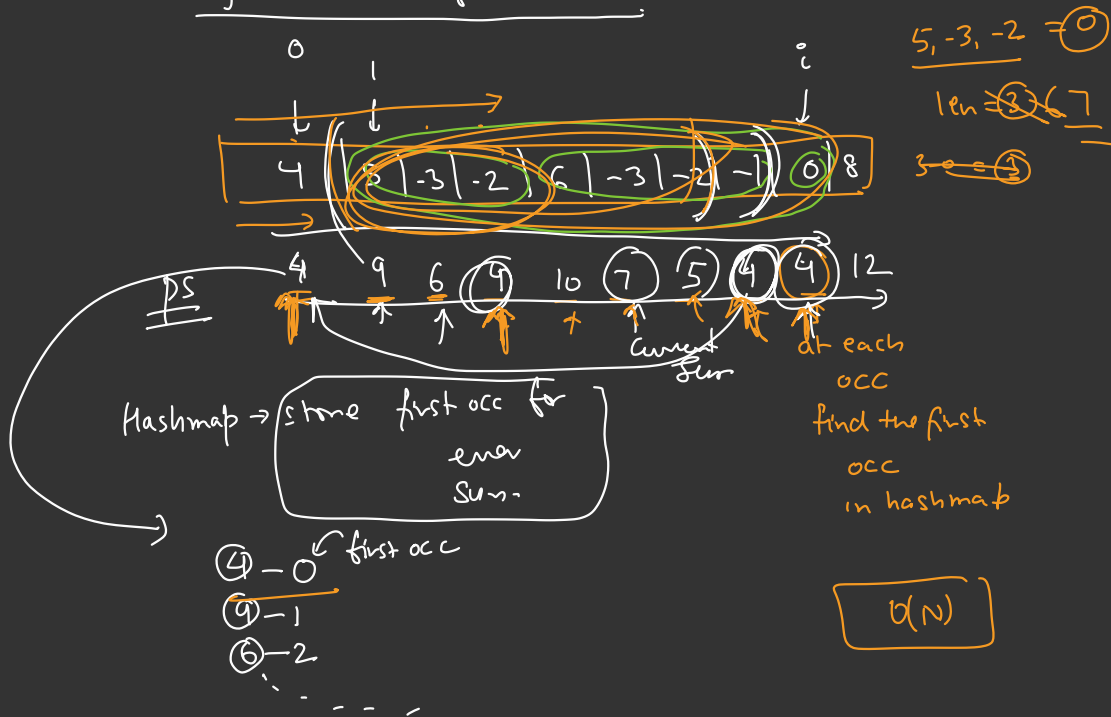 0
1
i
5, -3, -2 = 0
len = 3 6 7
3 - 0 = 3
4 | 5 | -3 | -2 | 6 | -3 | -2 | -1 | 0 | 8
PS
4 9 6 4 10 7 5 4 4 12
Current
Sum
at each
occ
find the first
occ
in hashmap
Hashmap → store first occ for
every
Sum.
first occ
4 - 0
9 - 1
6 - 2
O(N)